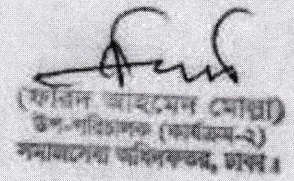 (ফরিদ আহমেদ মোল্লা)
উপ-পরিচালক (কার্যক্রম-২)
সমাজসেবা অধিদফতর, ঢাকা।